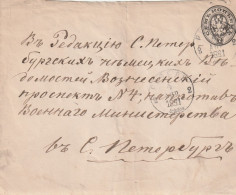 Въ Редакцію С. Петер
бургскихъ нѣмецкихъ Вѣ
домостей Вознесенскій
проспектъ №4, напротивъ
Военнаго Министерства
въ С. Петербургъ
1881